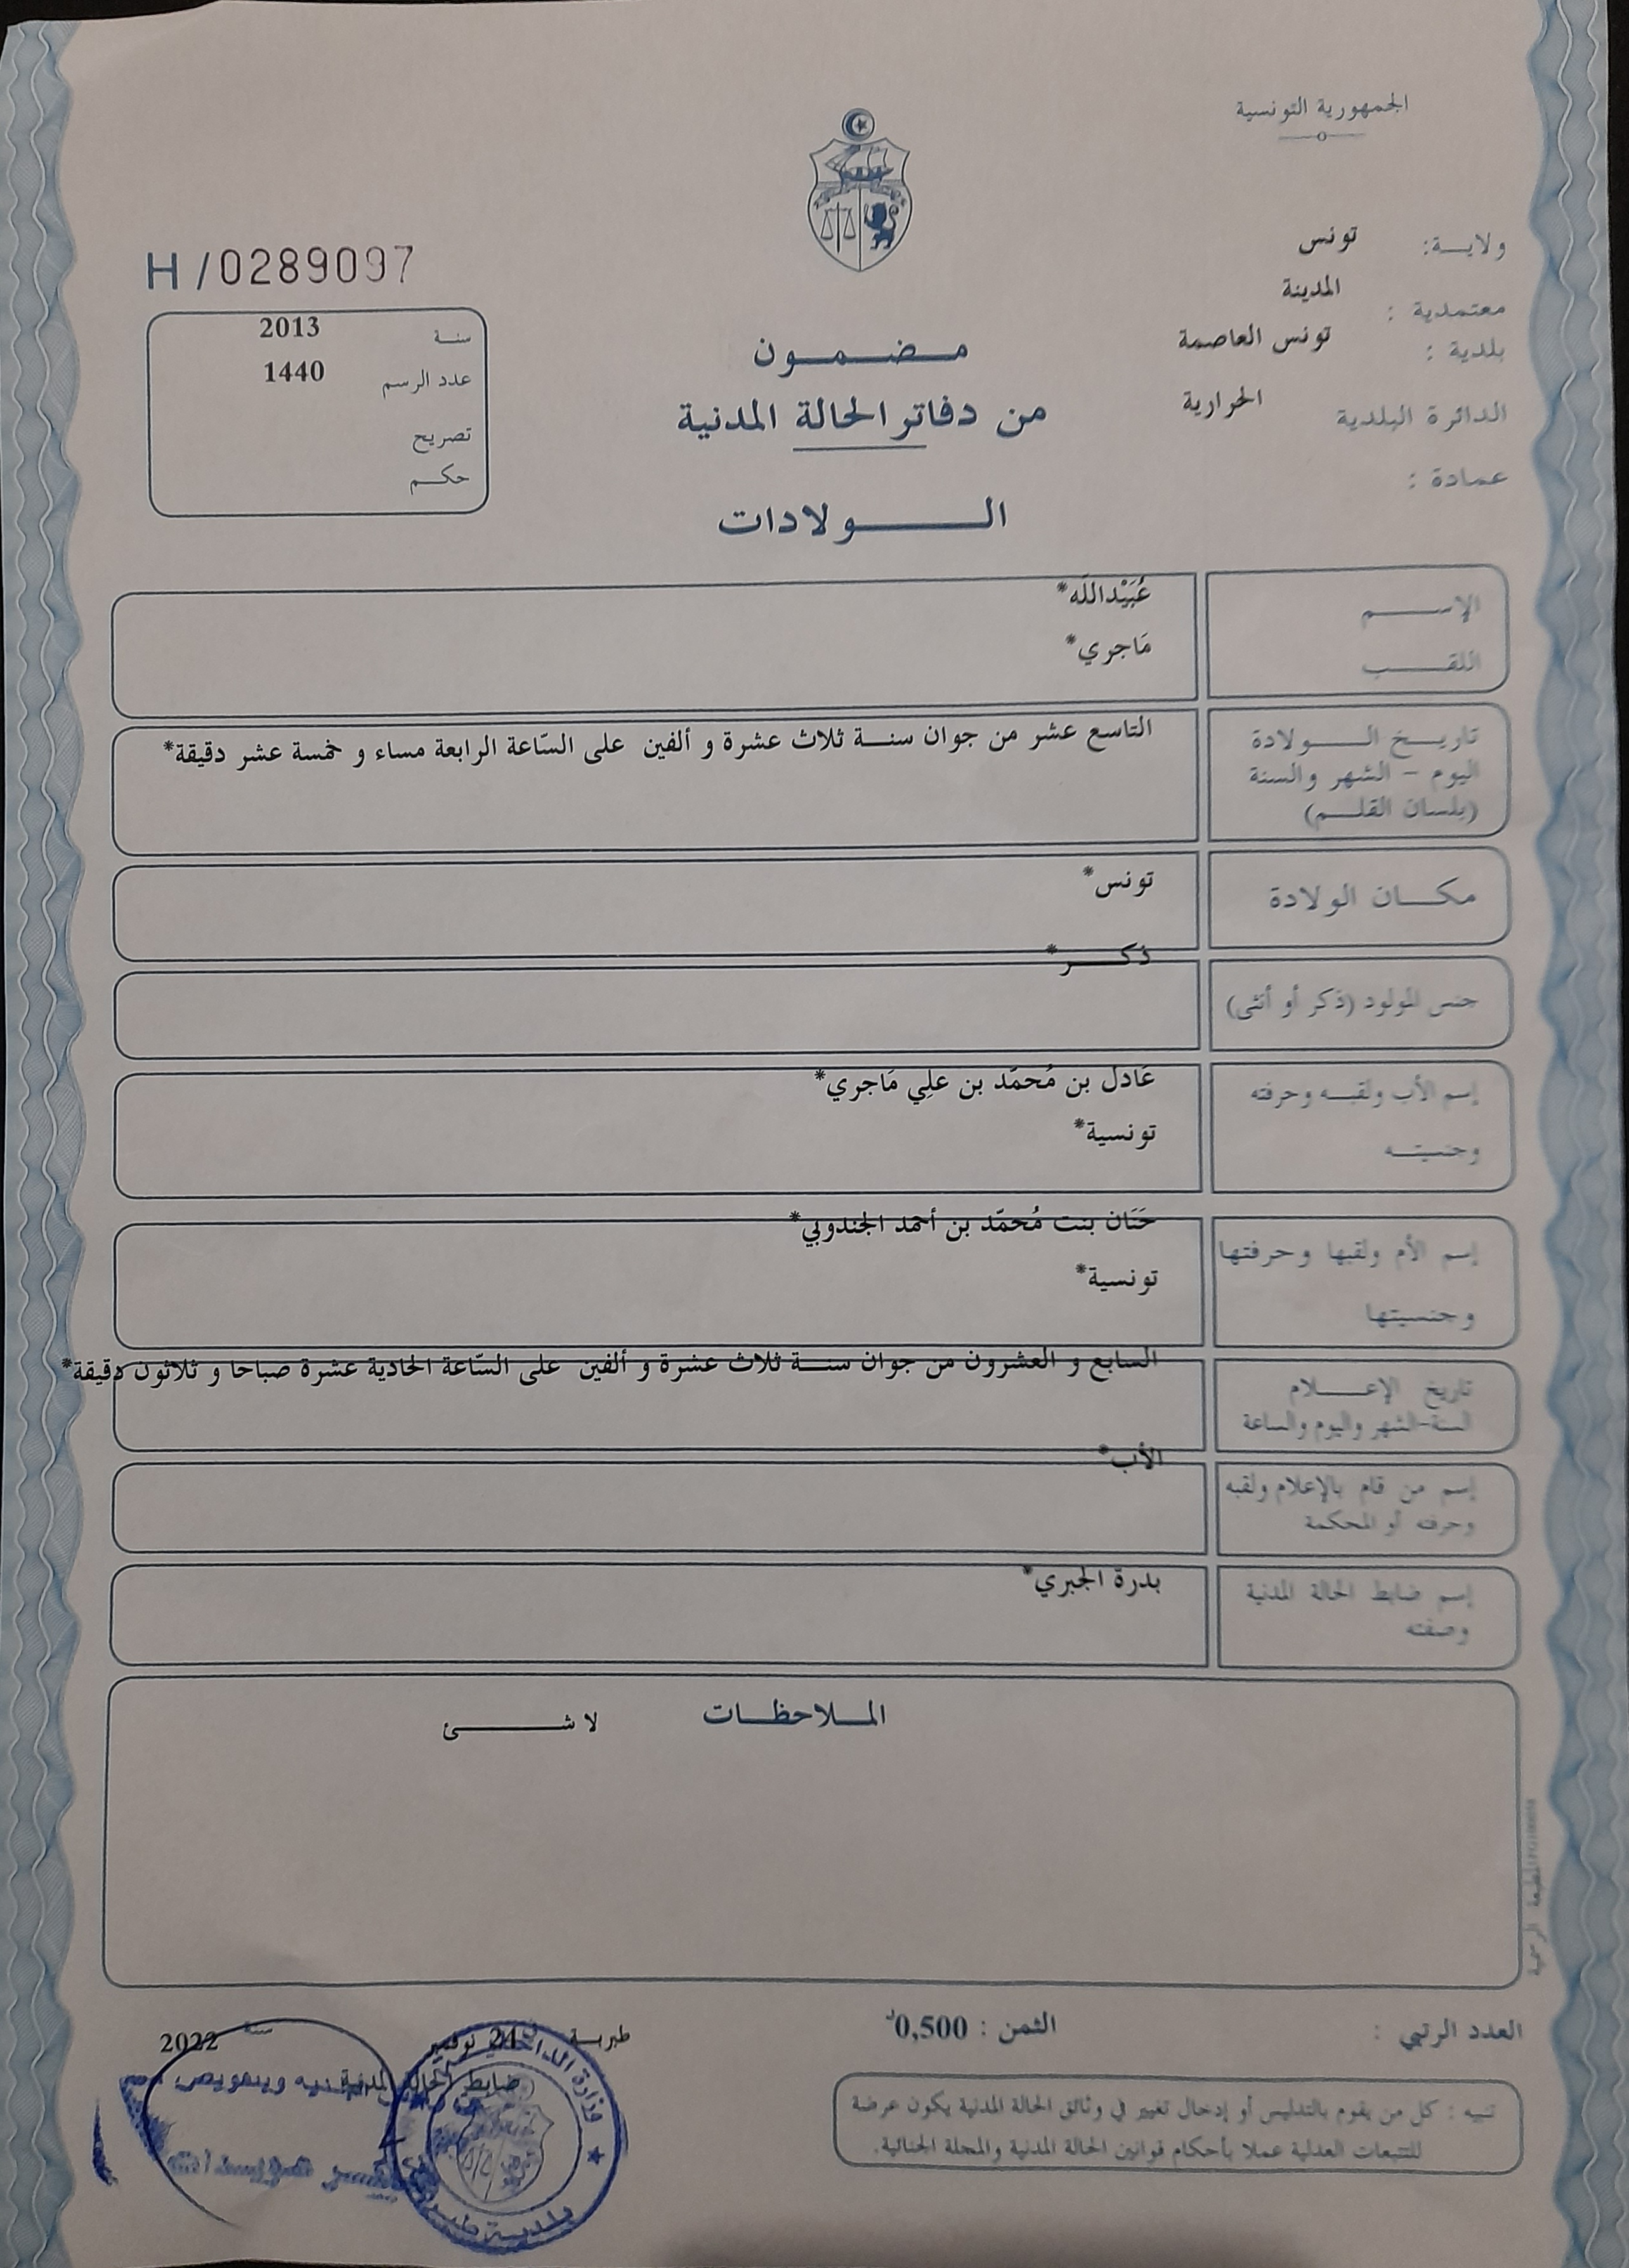 الجمهورية التونسية
ولايـــة: تونس
معتمدية : المدينة
بلدية : تونس العاصمة
الدائرة البلدية الحرارية
عمادة :
H/0289097
سنة 2013
عدد الرسم 1440
تصريح
حكم
مـضـمـون
من دفاتر الحالة المدنية
الـولادات
الإســـم عُبَيْدالله*
اللقـــب مَاجري*
تاريـخ الـــولادة
اليوم - الشهر والسنة
(بلسان القلـــم)
التاسع عشر من جوان سنـــة ثلاث عشرة و ألفين على السّاعة الرابعة مساء و خمسة عشر دقيقة*
مكـــان الولادة تونس*
جنس المولود (ذكر أو أنثى) ذكـــر*
إسم الأب ولقبـــه وحرفته عَادل بن مُحمّد بن علِي مَاجري*
وجنسيتـــه تونسية*
إسم الأم ولقبها وحرفتها حَنَان بنت مُحمّد بن أحمد الجندوبي*
وجنسيتها تونسية*
تاريخ الإعـــلام
السنة-الشهر واليوم والساعة
السابع و العشرون من جوان سنـــة ثلاث عشرة و ألفين على السّاعة الحادية عشرة صباحا و ثلاثون دقيقة*
إسم من قام بالإعلام ولقبه
وحرفته أو المحكمة
الأب*
إسم ضابط الحالة المدنية
وصفته
بدرة الجبري*
الملاحظـات لا شـــئ
المطبعة الرسمية
العدد الرتبي :
الثمن : 0,500د
طبربـة في 24 نوفمبر سنة 2022
ضابط الحالة المدنية
وزارة الداخلية
بلدية طبربة
تنبيه : كل من يقوم بالتدليس أو إدخال تغيير في وثائق الحالة المدنية يكون عرضة
للتتبعات العدلية عملا بأحكام قوانين الحالة المدنية والمجلة الجنائية.